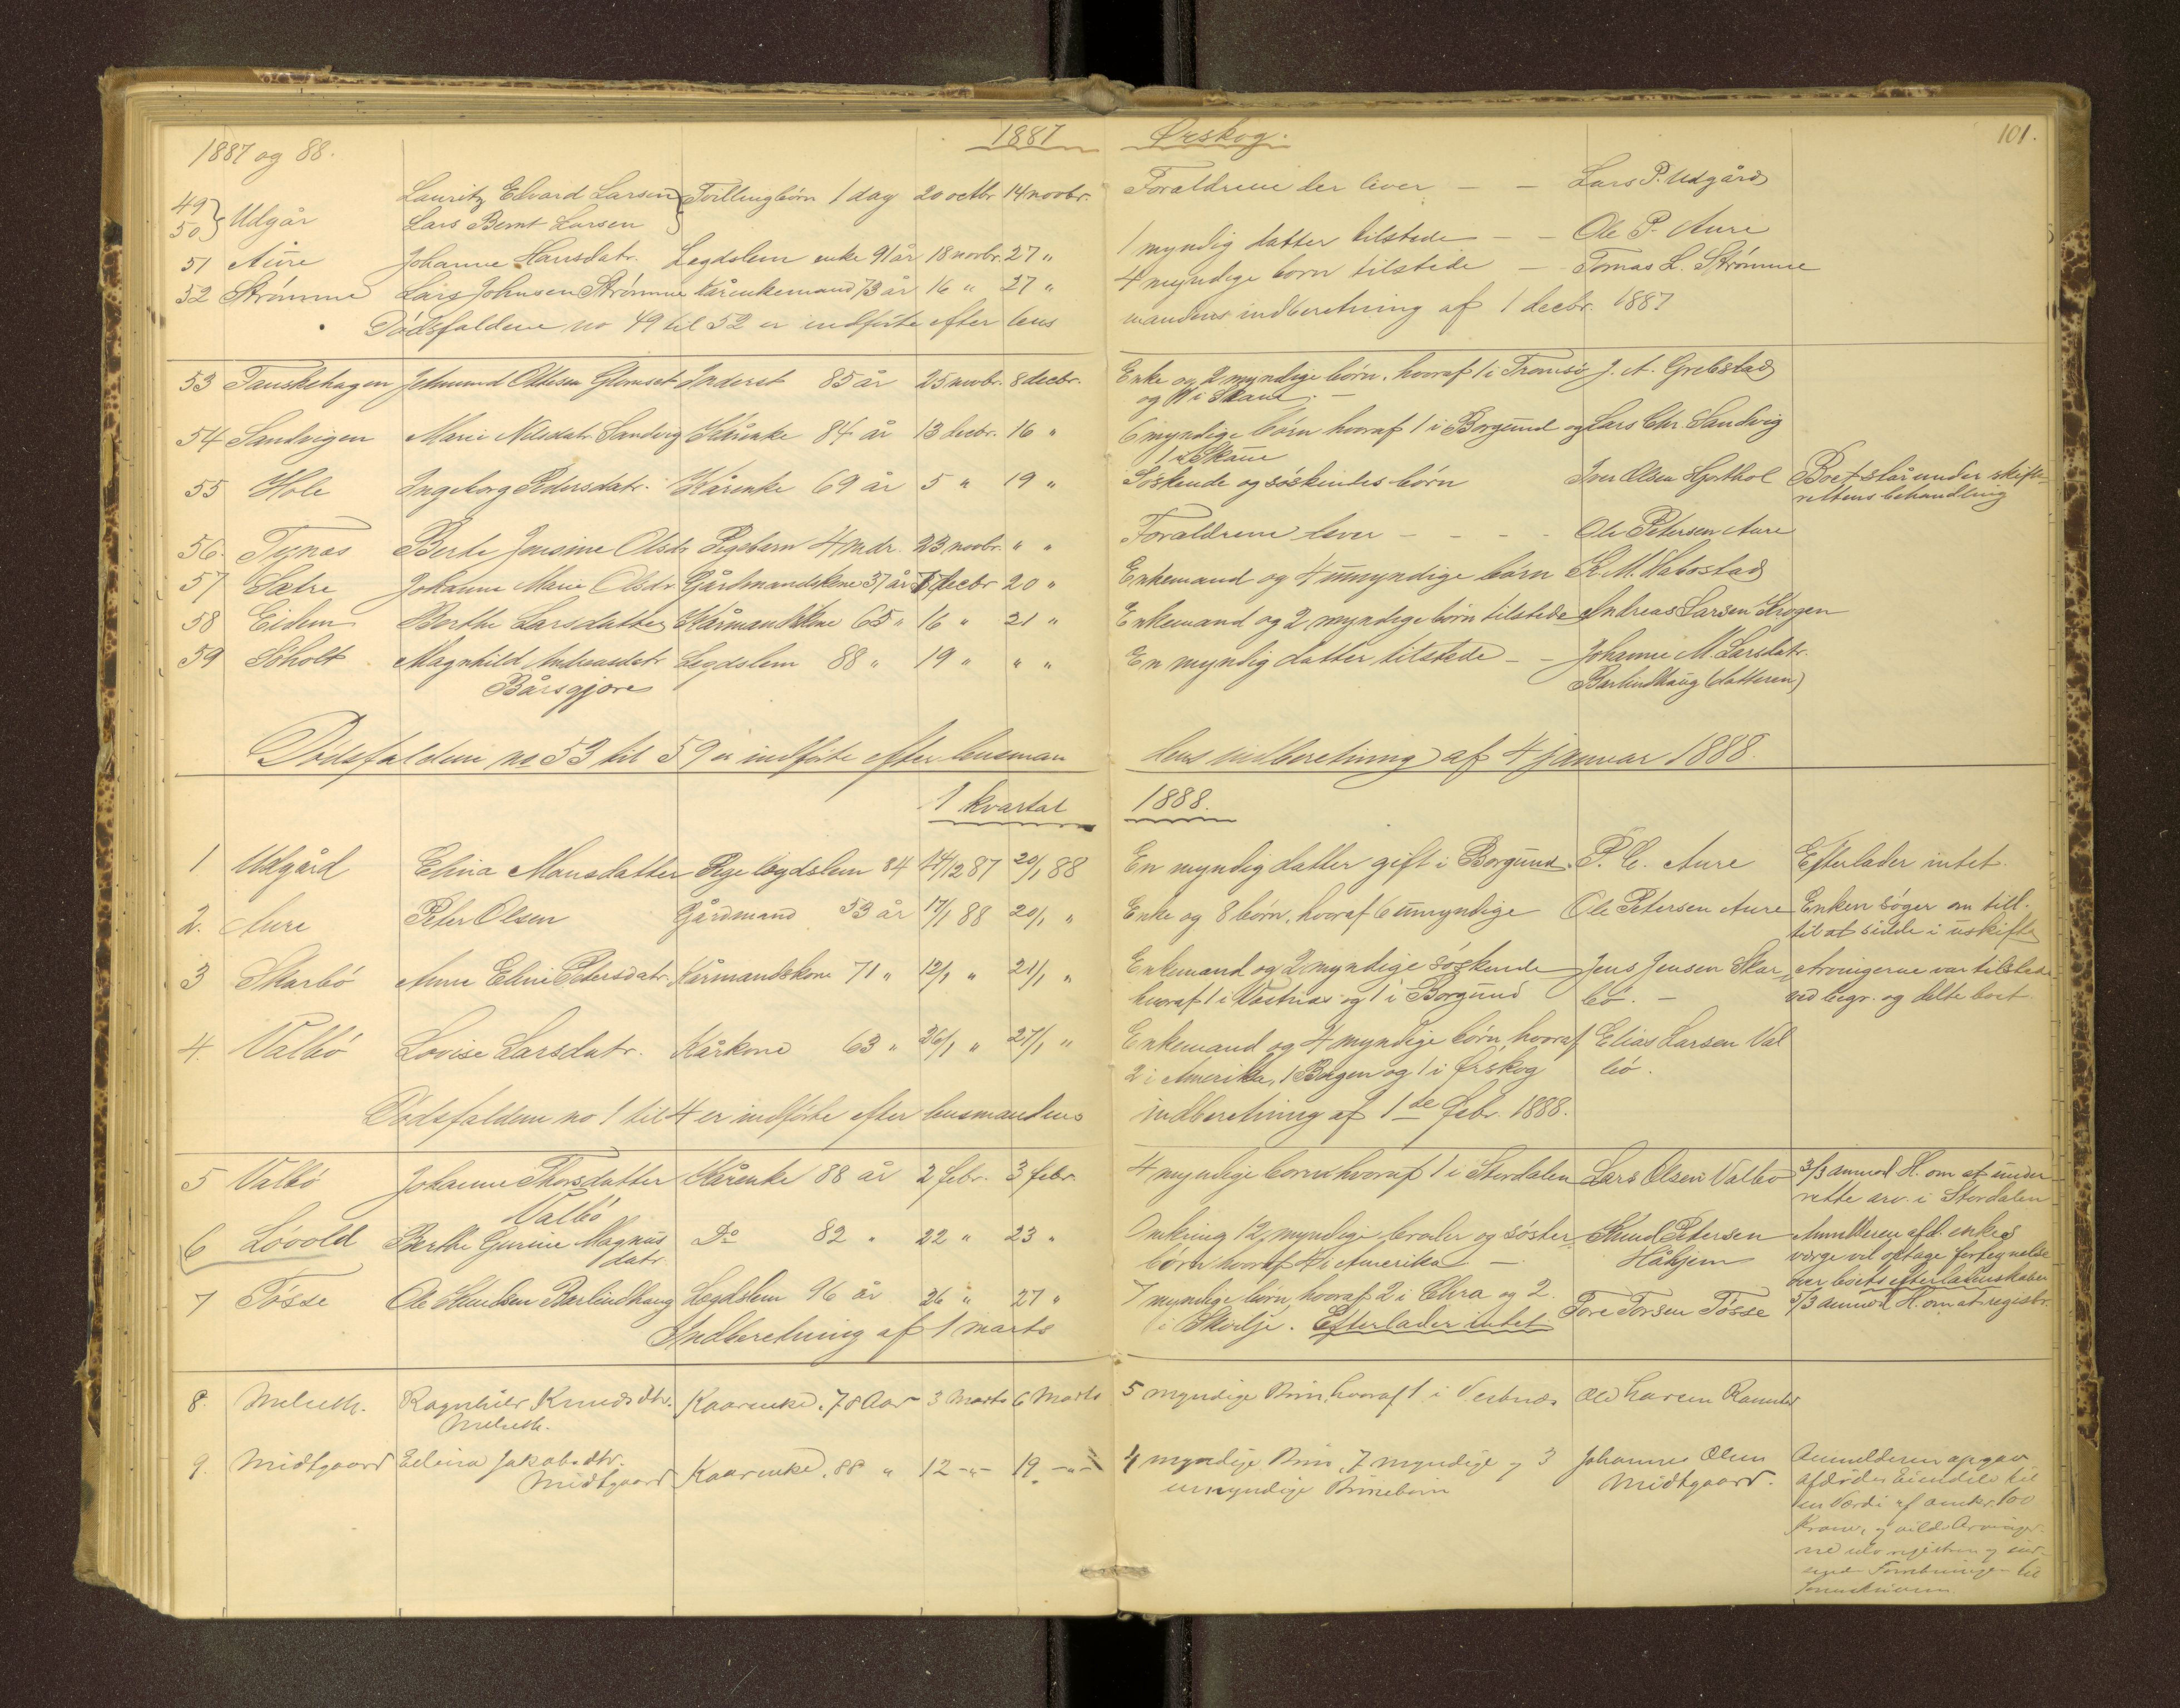 1887 og 88. 1887 Ørskog. 101.
49 50 } Udgår Lauritz Edvard Larsen } Tvillingbörn 1 dag 20 octbr 14 novbr. Foraldrene der lever - - Lars P. Udgård
Lars Bernt Larsen
51 Aure Johanne Hansdatr. Legdslem enke 91 år 18 novbr. 27 " 1 myndig datter tilstede - - Ole P. Aure
52 Strömme Lars Johnsen Strömme Kårenkemand 73 år 16 " 27 " 4 myndige born tilstede - Tomas L. Strömme
Dödsfaldene no 49 til 52 er indförte efter lens mandens indberetning af 1 decbr. 1887
53 Jetmund Ottesen Glomset Inderst 85 år 25 novbr. 8 decbr. Enke og 2 myndige börn, hvoraf 1 i Tromsö J. A. Grebstad
og 1 i Skaue. -
54 Sandvigen Marie Nilsdatr Sandvig Kårenke 84 år 13 decbr. 16 " 6 myndige börn hvoraf 1 i Borgund og Lars Chr. Sandvig
1 i Skaue
55 Hole Ingeborg Pedersdatr. Kårenke 69 år 5 " 19 " Söskende og söskendes börn Iver Olsen Hjorthol Boet står under skifte-
rettens behandling
56. Tynæs Berte Jensine Olsdr Pigebarn 4 mdr. 23 novbr. " " Foraldrene lever - - - - Ole Petersen Aure
57 Sætre Johanne Marie Olsdr Gårdmandskone 37 år decbr 20 " Enkemand og 4 umyndige börn K. M. Habostad
58 Eidem Berthe Larsdatter Kårmandskone 65 " 16 " 21 " Enkemand og 2 myndige börn tilstede Andreas Larsen Krogen
59 Söholt Magnhild Andreasdatr Legdslem 88 " 19 " " " En myndig datter tilstede - - Johanne M. Larsdatr.
Bårsgjore Barlindhaug (datteren)
Dodsfaldene no 53 til 59 er indförte efter lensman dens indberetning af 4 januar 1888.
1 kvartal 1888.
1 Udgård Elina Monsdatter Pige legdslem 84 14/12 87 20/1 88 En myndig datter gift i Borgund. P. C. Aure Efterlader intet.
2. Aure Peter Olsen Gårdmand 53 år 17/1 88 20/1 " Enke og 8 börn, hvoraf 6 umyndige Ole Petersen Aure Enken söger om till.
til at sidde i uskifte
3 Skarbö Anne Eline Petersdatr. Kårmandskone 71 " 12/1 " 21/1 " Enkemand og 2 myndige söskende Jens Jensen Skar- Arvingerne var tilstede
hvoraf 1 i Vestnæs og 1 i Borgund bö. - ved begr. og delte boet.
4. Valbö Lovise Larsdatr. Kårkone 63 " 26/1 " 27/1 " Enkemand og 4 myndige börn hvoraf Elias Larsen Val
2 i Amerika, 1 Bergen og 1 i Ørskog bö.
Dödsfaldene no 1 til 4 er indförte efter lensmandens indberetning af 1de febr. 1888.
5 Valbö Johanne Thorsdatter Kårenke 88 år 2 febr. 3 febr. 4 myndige born hvoraf 1 i Stordalen Lars Olsen Valbö 3/3 anmod. H. om at under
Valbö rette arv. i Stordalen
6 Lövold Berthe Gurine Magnus Do 82 " 22 " 23 " Omkring 12 myndige broder og söster- Knud Petersen Anmelderen afd. enkes
datr. börn hvoraf 4 i Amerika - Håhjem verge vil optage fortegnelse
over boets efterladenskaber
7 Tösse Ole Knudsen Barlindhaug Legdslem 96 år 26 " 27 " 7 myndige börn, hvoraf 2 i Ehra og 2 Tore Torsen Tösse 5/3 anmod. H. om at registr.
Indberetning af 1 marts i Skodje. Efterlader intet
8. Melseth. Ragnhild Knudsdtr. Kaarenke. 78 Aar 3 Marts 6 Marts 5 myndige Börn, hvoraf 1 i Vestnæs Ole Larsen
Melseth.
9. Midtgaard Elina Jakobsdtr. Kaarenke. 88 " 12 -"- 19 -"- 4 myndige Börn, 7 myndige og 3 Johannes Olsen Anmelderen opgav
Midtgaard umyndige Börnebörn Midtgaard. afdödes Eiendele til
en Værdi af omkr. 100
Kroner, og vilde Arvinger-
ne selv registrere og ind-
sende Forretningen til
Sorenskriveren.